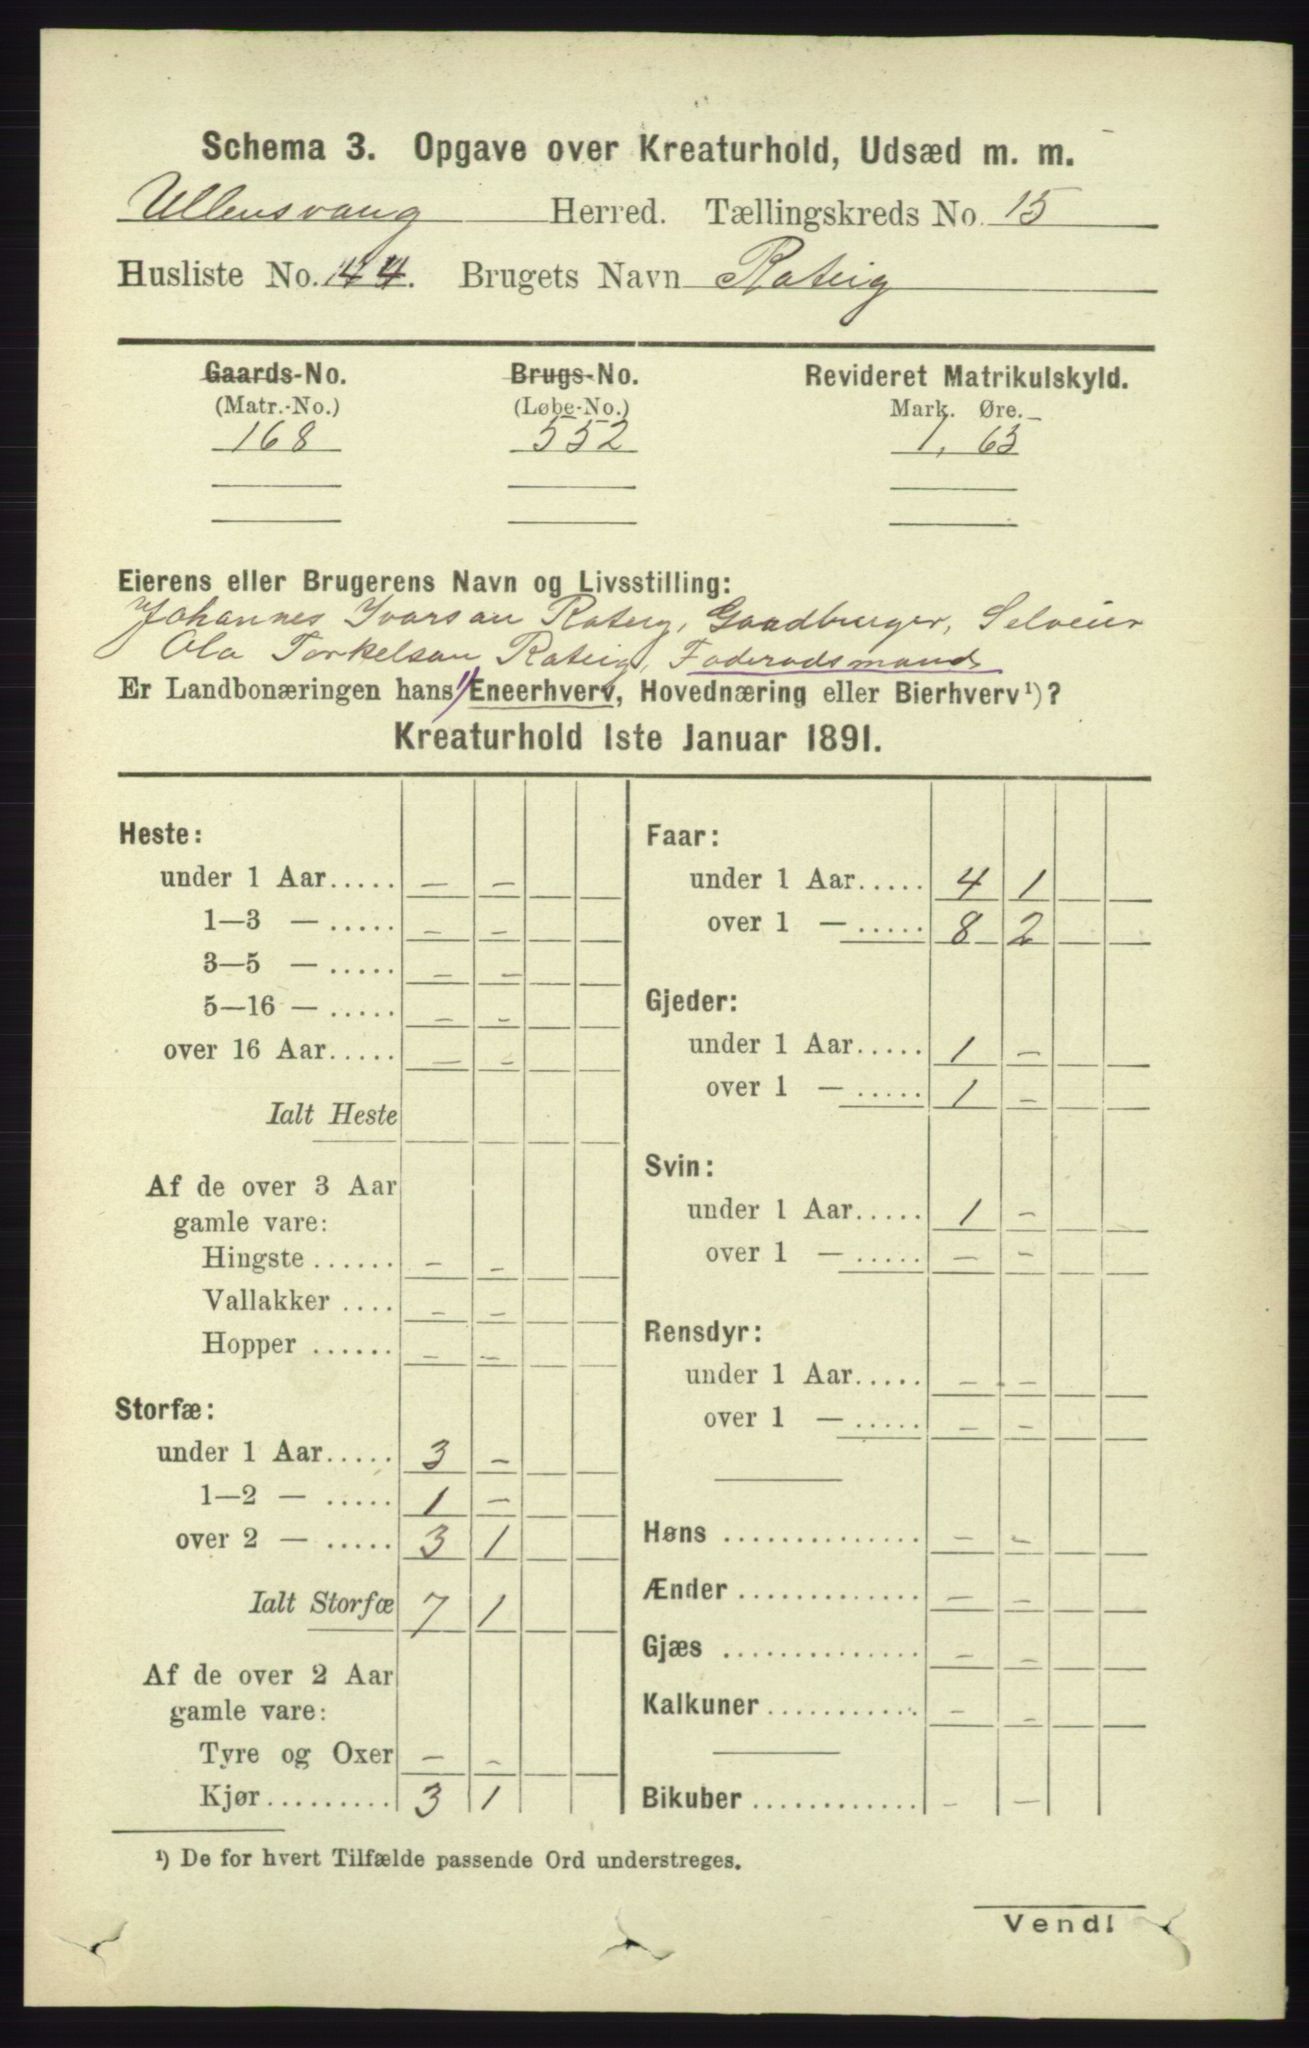 Schema 3. Opgave over Kreaturhold, Udsæd m. m.
Ullensvang Herred. Tællingskreds No. 15
Husliste No. 44. Brugets Navn Rateig
Gaards-No. Brugs-No. Revideret Matrikulskyld.
(Matr.-No.) (Løbe-No.) Mark. Øre.
168 552 1, 63
Eierens eller Brugerens Navn og Livsstilling:
Johannes Ivarsøn Rateig, Gaardbruger, Selveier
Ola Torkelsøn Rateig, Foderaadsmand
Er Landbonæringen hans Eneerhverv, Hovednæring eller Bierhverv¹)?
Kreaturhold 1ste Januar 1891.
Heste:
under 1 Aar..... — —
1—3 — ..... — —
3—5 — ..... — —
5—16 — ..... — —
over 16 Aar..... — —
Ialt Heste
Af de over 3 Aar
gamle vare:
Hingste ...... — —
Vallakker .... — —
Hopper ...... — —
Storfæ:
under 1 Aar..... 3 —
1—2 — ..... 1 —
over 2 — ..... 3 1
Ialt Storfæ 7 1
Af de over 2 Aar
gamle vare:
Tyre og Oxer — —
Kjør......... 3 1
Faar:
under 1 Aar..... 4 1
over 1 — ..... 8 2
Gjeder:
under 1 Aar..... 1 —
over 1 — ..... 1 —
Svin:
under 1 Aar..... 1 —
over 1 — ..... — —
Rensdyr:
under 1 Aar..... — —
over 1 — ..... — —
Høns ............... — —
Ænder .............. — —
Gjæs ............... — —
Kalkuner ............ — —
Bikuber ............. — —
¹) De for hvert Tilfælde passende Ord understreges.
Vend!